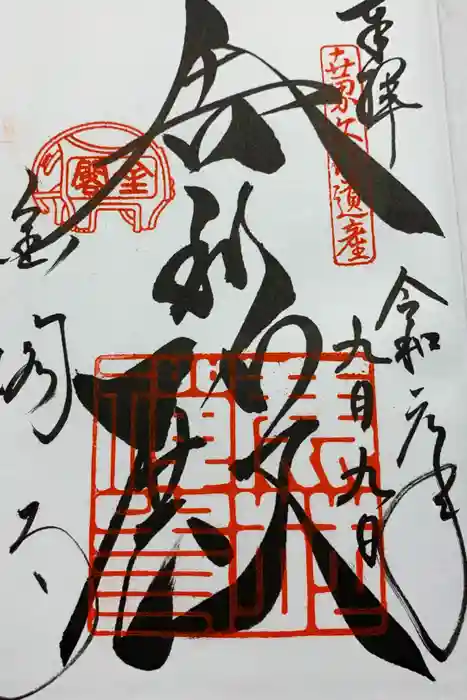 奉拝
世界文化遺産
令和元年
九月九日
舎利殿
鹿苑
禅寺
金閣寺